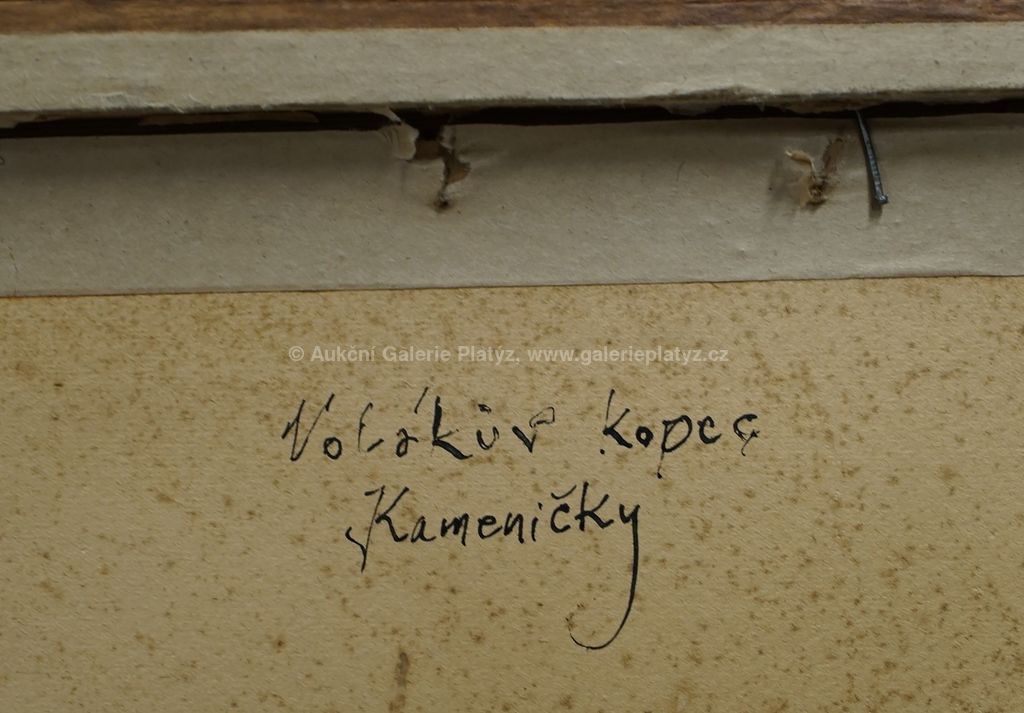 © Aukční Galerie Platýz, www.galerieplatyz.cz
Volákův kopec
Kameničky